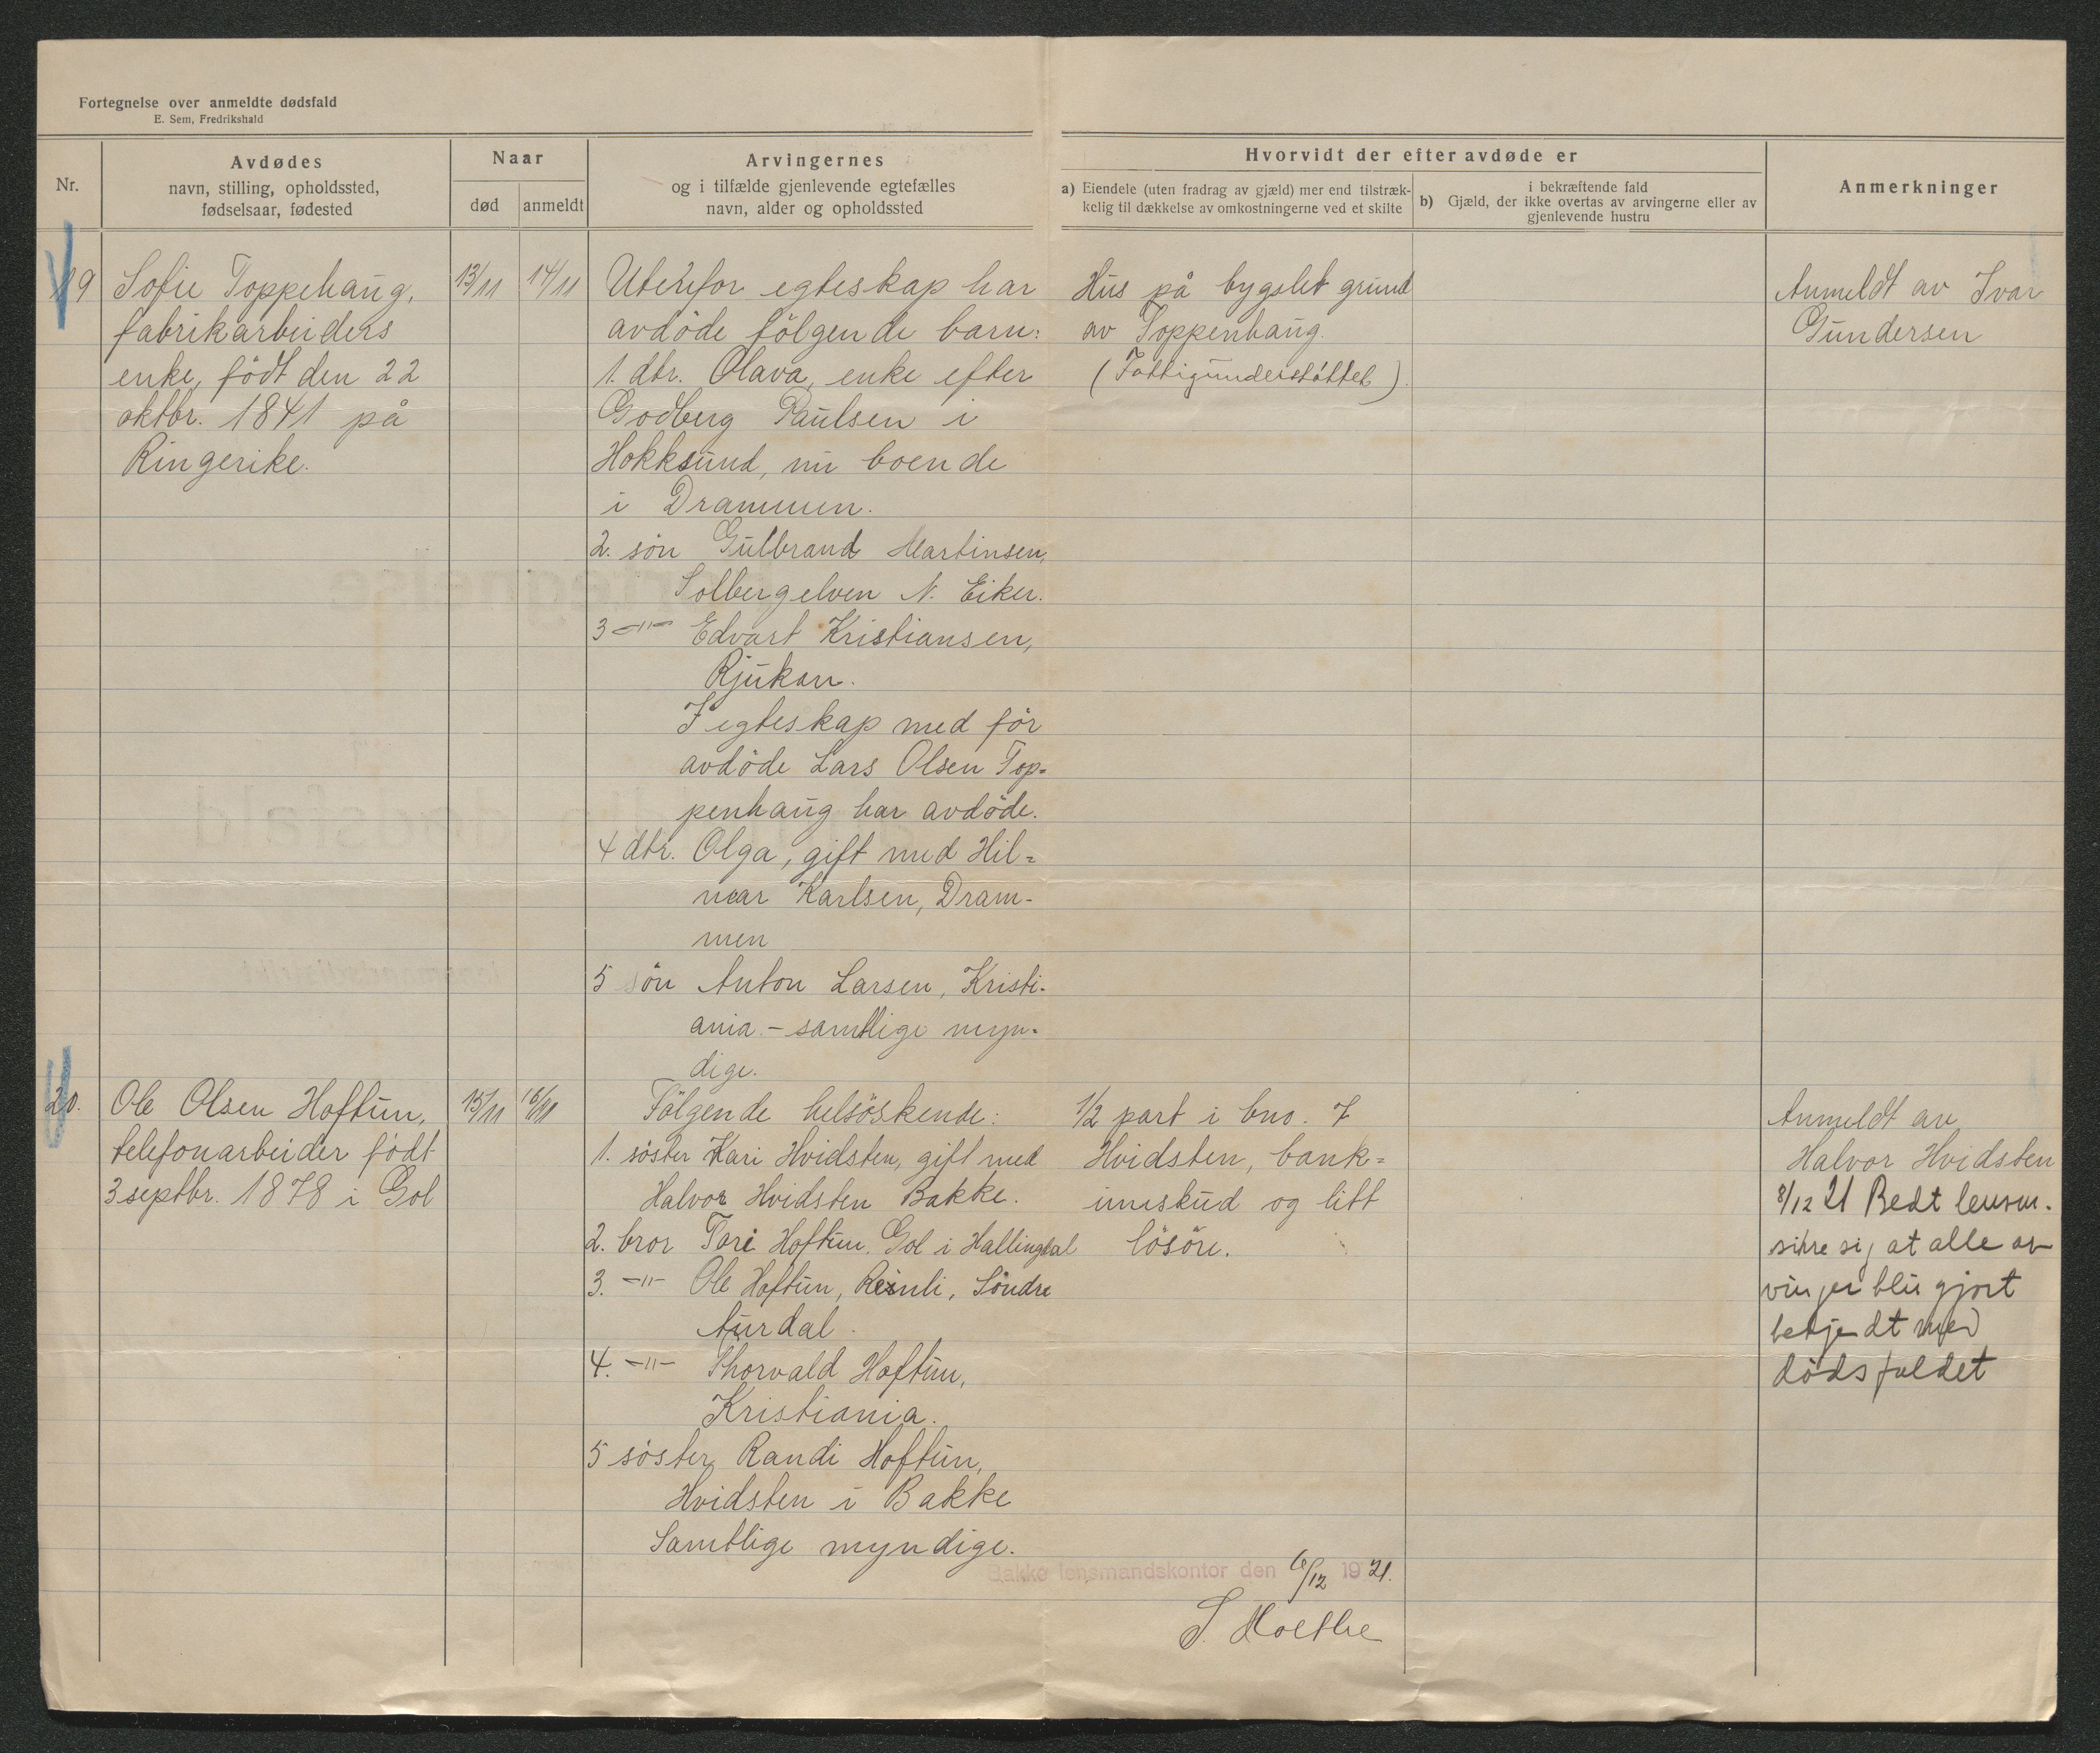 Fortegnelse over anmeldte dødsfald
E. Sem, Fredrikshald
Nr.
Avdødes
navn, stilling, opholdssted,
fødselsaar, fødested
Naar
død
anmeldt
Arvingernes
og i tilfælde gjenlevende egtefælles
navn, alder og opholdssted
Hvorvidt der efter avdøde er
a) Eiendele (uten fradrag av gjæld) mer end tilstræk-
kelig til dækkelse av omkostningerne ved et skifte
b) Gjæld, der i bekræftende fald
ikke overtas av arvingerne eller av
gjenlevende hustru
Anmerkninger
19
Sofie Toppehaug,
fabrikarbeiders
enke, født den 22
oktbr. 1841 på
Ringerike.
13/11
14/11
Utenfor egteskap har
avdøde følgende barn:
1. dtr. Olava, enke efter
Godberg Paulsen i
Hokksund, nu boende
i Drammen.
2. søn Gulbrand Martinsen,
Solbergelven N. Eiker.
3 -"- Edvart Kristiansen,
Rjukan.
I egteskap med før
avdøde Lars Olsen Top=
penhaug har avdøde.
4 dtr. Olga, gift med Hil=
mar Karlsen, Dram-
men
5 søn Anton Larsen, Kristi-
ania - samtlige myn-
dige.
Hus på bygslet grund
av Toppenhaug.
(Fattigunderstøttet).
Anmeldt av Ivar
Gundersen
20.
Ole Olsen Hoftun,
telefonarbeider født
3 septbr. 1878 i Gol
15/11
16/11
Følgende helsøskende:
1. søster Kari Hvidsten, gift med
Halvor Hvidsten Bakke.
2. bror Tori Hoftun, Gol i Hallingdal
3. -"- Ole Hoftun, Reinli, Søndre
Aurdal.
4. -"- Thorvald Hoftun,
Kristiania.
5 søster Randi Hoftun,
Hvidsten i Bakke
Samtlige myndige.
1/2 part i bno. 7
Hvidsten, bank=
inskud og litt
løsøre.
Anmeldt av
Halvor Hvidsten
8/12 21 Bedt lensm.
sikre sig at alle ar-
vinger blir gjort
bekjendt med
dødsfaldet
Bakke lensmandskontor den 6/12 1921.